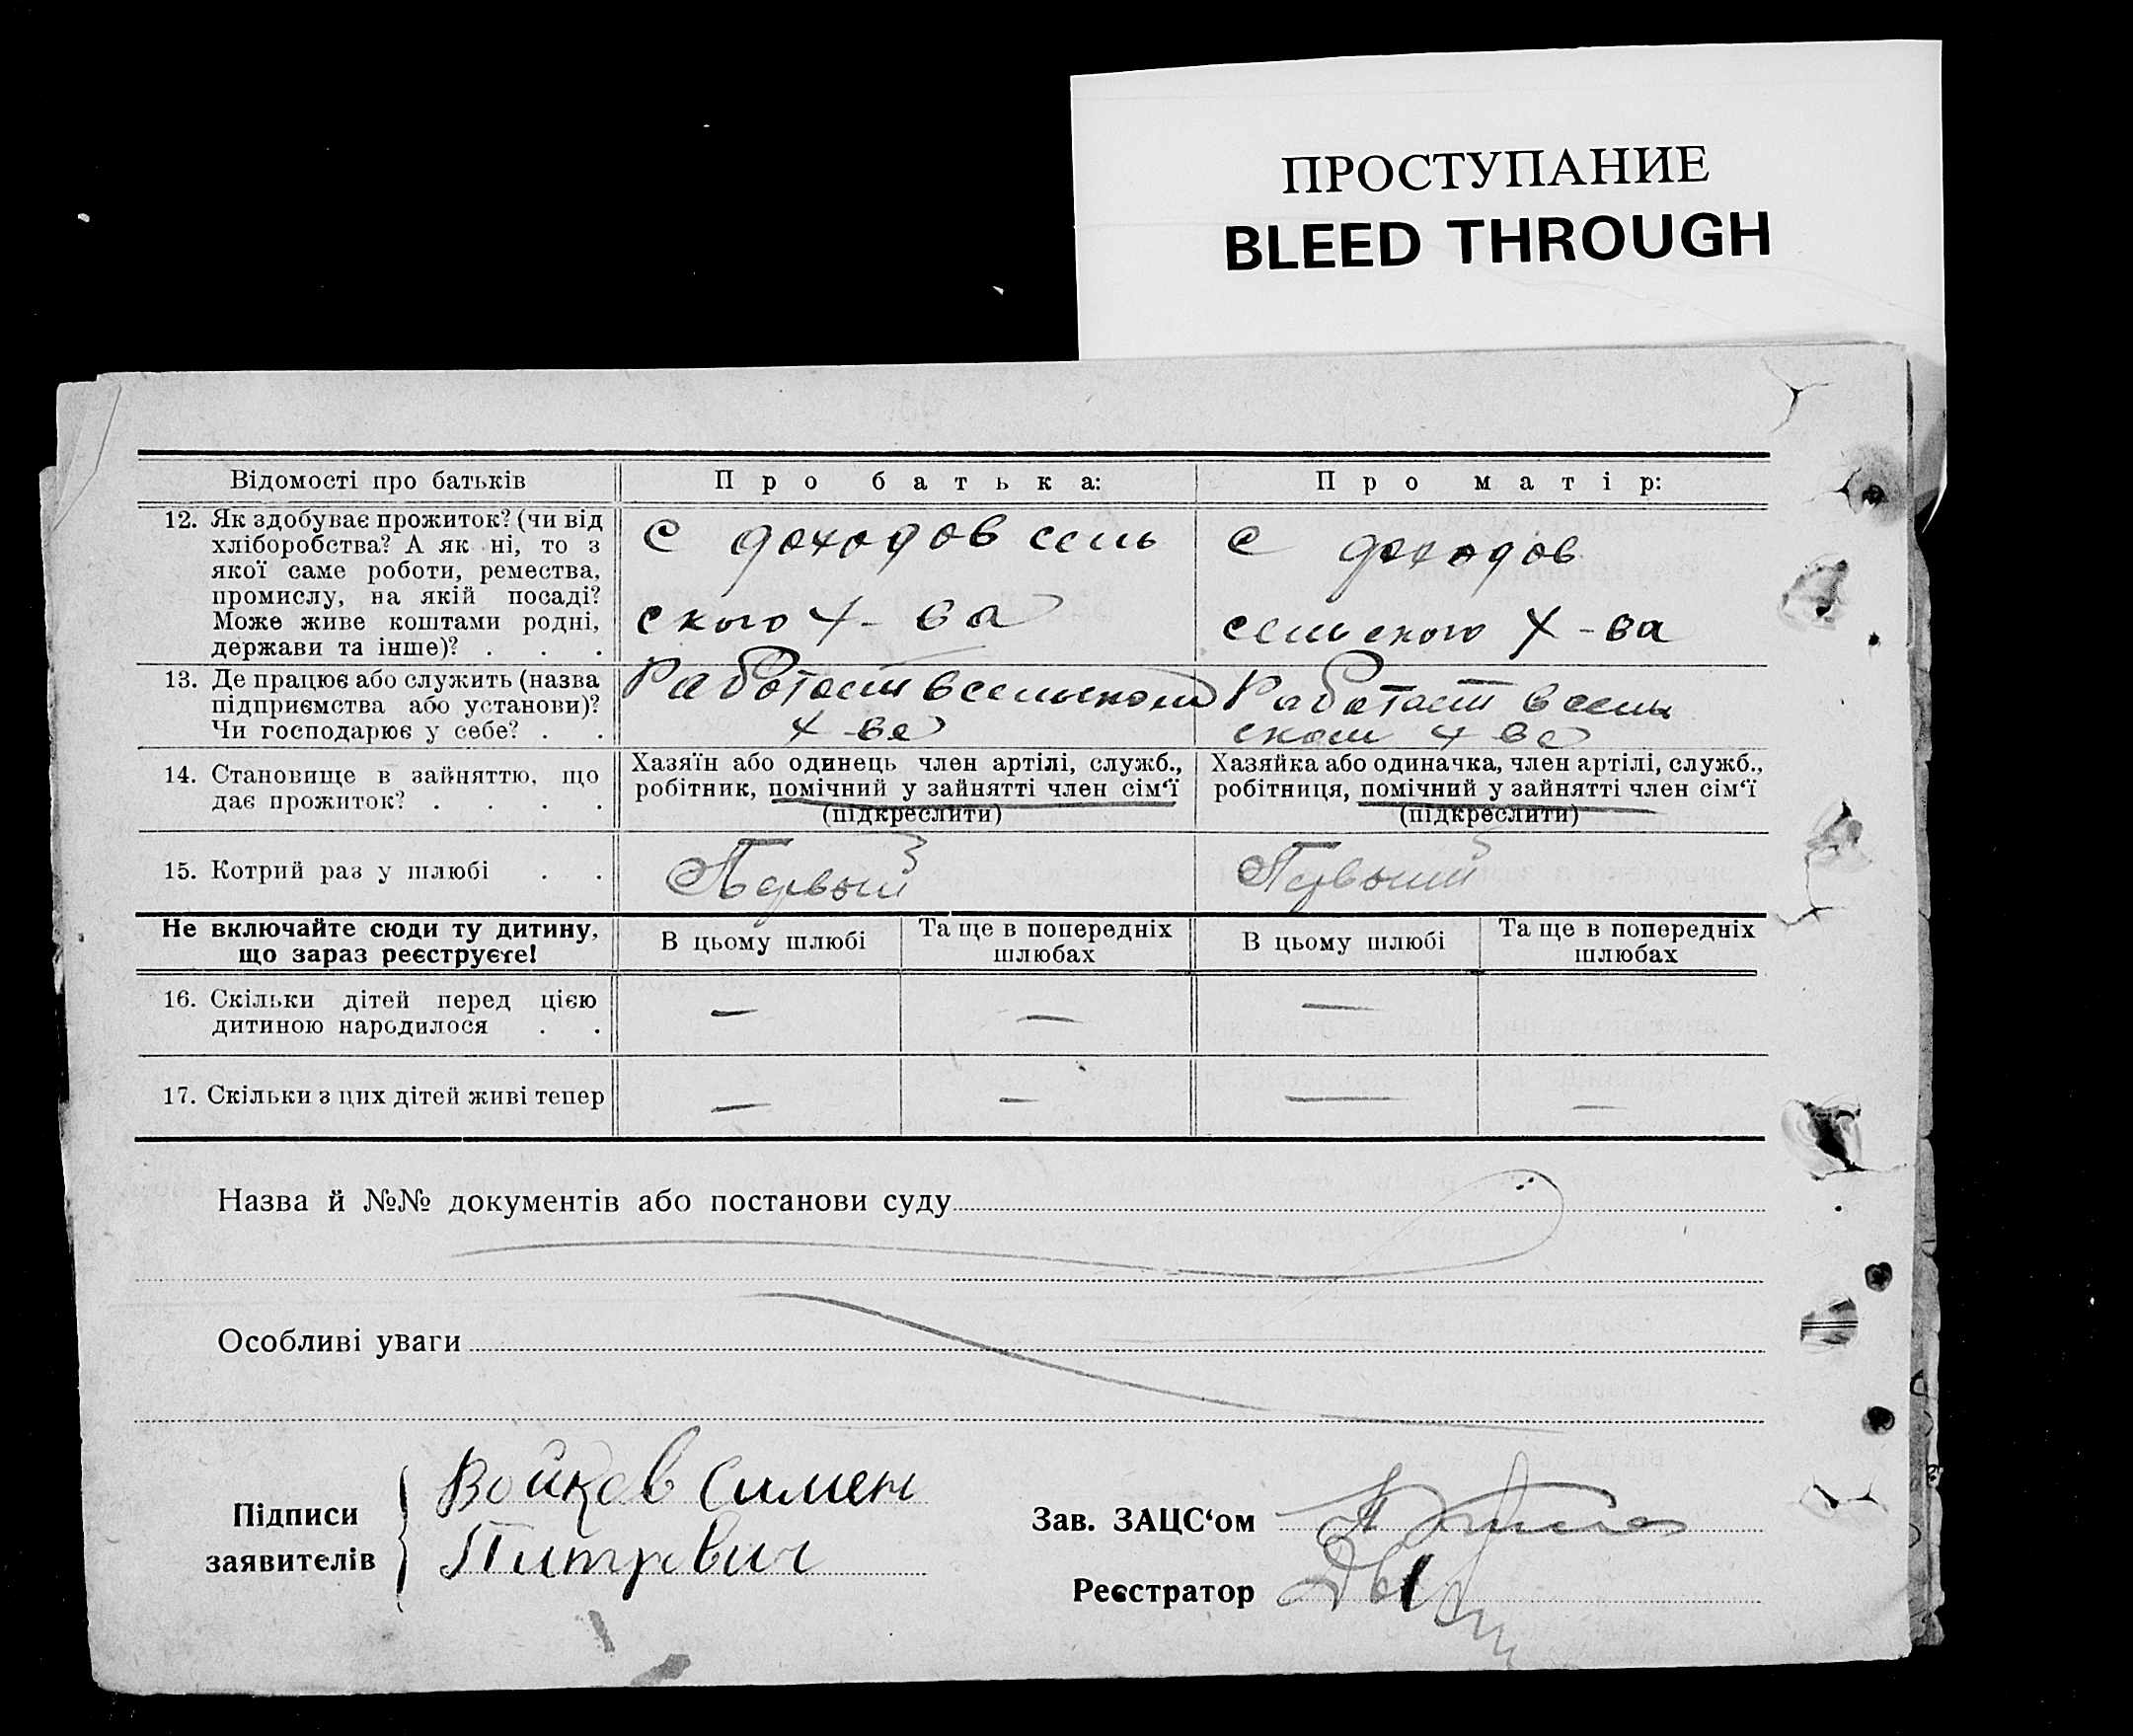 ПРОСТУПАНИЕ
BLEED THROUGH
Відомості про батьків
Про батька:
Про матір:
12. Як здобуває прожиток? (чи від
хліборобства? А як ні, то з
якої саме роботи, ремества,
промислу, на якій посаді?
Може живе коштами родні,
держави та інше)? . . .
С доходов сель
ского х-ва
С доходов
сельского х-ва
13. Де працює або служить (назва
підприємства або установи)?
Чи господарює у себе? . .
Работает в сельском
х-ве
Работает в сель
ском х-ве
14. Становище в зайняттю, що
дає прожиток? . . . .
Хазяїн або одинець член артілі, служб.,
робітник, помічний у зайнятті член сім'ї
(підкреслити)
Хазяйка або одиначка, член артілі, служб.,
робітниця, помічний у зайнятті член сім'ї
(підкреслити)
15. Котрий раз у шлюбі . .
Первый
Первый
Не включайте сюди ту дитину,
що зараз реєструєте!
В цьому шлюбі
Та ще в попередніх
шлюбах
В цьому шлюбі
Та ще в попередніх
шлюбах
16. Скільки дітей перед цією
дитиною народилося . .
— — —
17. Скільки з цих дітей живі тепер
— — — —
Назва й №№ документів або постанови суду
Особливі уваги
Підписи
заявителів
Войков Симен
Питрович
Зав. ЗАЦС'ом
Реєстратор